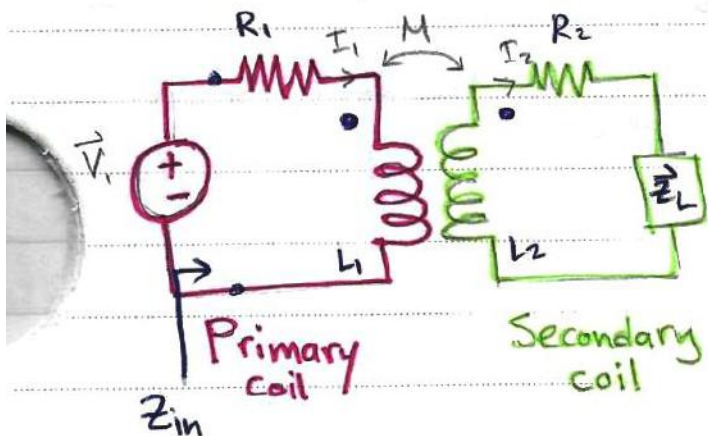 R₁ I₁ M I₂ R₂
V⃗₁ + − Z⃗L
L₁ L₂
Primary coil
Secondary coil
Zin